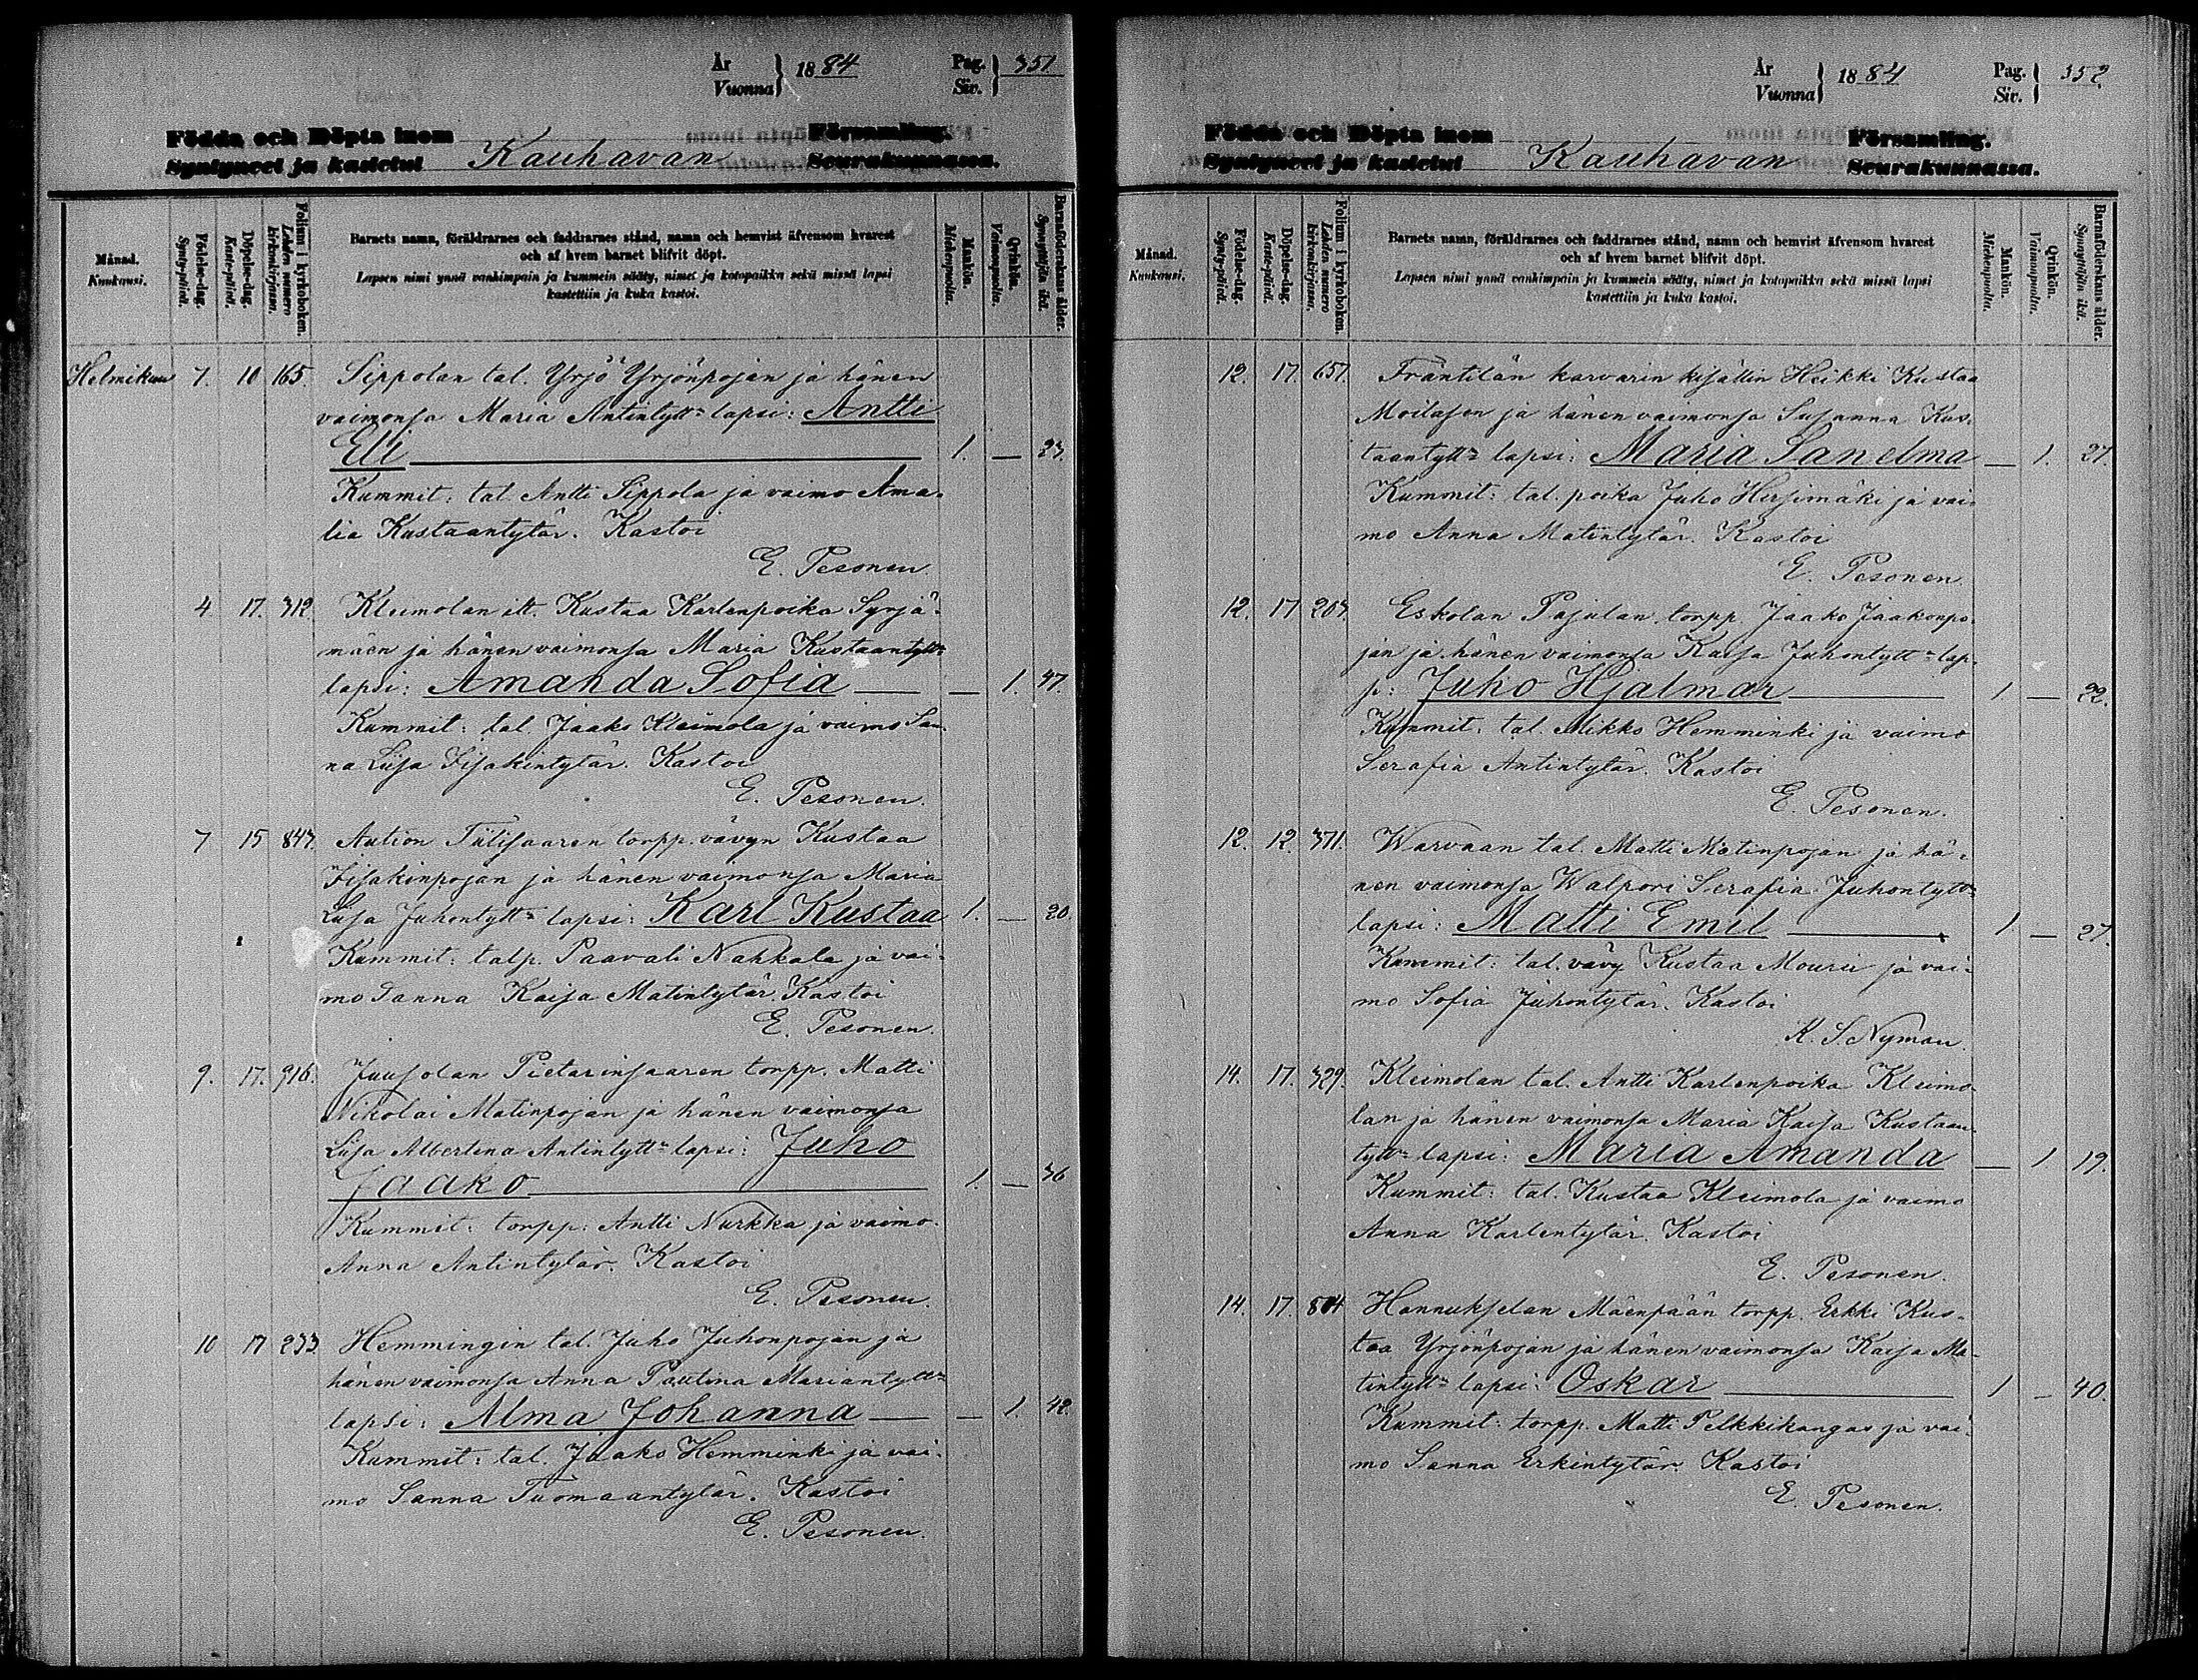 År
Vuonna } 1884
Pag.
Siv. } 351
Födda och Döpta inom
Syntyneet ja kastetut Kauhavan Församling.
Seurakunnassa.
Månad.
Kuukausi.
Födelse-dag.
Synty-päivä.
Döpelse-dag.
Kaste-päivä.
Folium i kyrkoboken.
Lehden numero
kirkonkirjassa.
Barnets namn, föräldrarnes och faddrarnes stånd, namn och hemvist äfvensom hvarest
och af hvem barnet blifvit döpt.
Lapsen nimi ynnä vanhimpain ja kummein sääty, nimet ja kotopaikka sekä missä lapsi
kastettiin ja kuka kastoi.
Mankön.
Miehenpuolia.
Qvinkön.
Vaimonpuolia.
Barnaföderskans ålder.
Synnyttäjän ikä.
Helmikuu 7. 10 165. Sippolan tal. Yrjö Yrjönpojan ja hänen
vaimonsa Maria Antintytt= lapsi: Antti
Eli 1. — 23.
Kummit: tal. Antti Sippola ja vaimo Ama-
lia Kustaantytär. Kastoi
E. Pesonen.
4 17. 312. Kleimolan itt. Kustaa Karlenpoika Syrjä-
mäen ja hänen vaimonsa Maria Kustaantytt=
lapsi: Amanda Sofia — 1. 47.
Kummit: tal. Jaako Kleimola ja vaimo San-
na Liisa Iisakintytär. Kastoi
E. Pesonen.
7 15 847. Aution Tiilisaaren torpp. vävyn Kustaa
Iisakinpojan ja hänen vaimonsa Maria
Liisa Juhontytt= lapsi: Karl Kustaa 1. — 20.
Kummit: talp. Paavali Nahkala ja vai-
mo Sanna Kaisa Matintytär. Kastoi
E. Pesonen.
9. 17. 916. Juusolan Pietarinsaaren torpp. Matti
Nikolai Matinpojan ja hänen vaimonsa
Liisa Albertina Antintytt= lapsi: Juho
Jaako 1. — 36
Kummit: torpp: Antti Nurkka ja vaimo
Anna Antintytär. Kastoi
E. Pesonen.
10 17 233. Hemmingin tal. Juho Juhonpojan ja
hänen vaimonsa Anna Paulina Mariantytt=
lapsi: Alma Johanna — 1. 42.
Kummit: tal. Jaako Hemminki ja vai-
mo Sanna Tuomaantytär. Kastoi
E. Pesonen.
År
Vuonna } 1884
Pag.
Siv. } 352
Födda och Döpta inom
Syntyneet ja kastetut Kauhavan Församling.
Seurakunnassa.
Månad.
Kuukausi.
Födelse-dag.
Synty-päivä.
Döpelse-dag.
Kaste-päivä.
Folium i kyrkoboken.
Lehden numero
kirkonkirjassa.
Barnets namn, föräldrarnes och faddrarnes stånd, namn och hemvist äfvensom hvarest
och af hvem barnet blifvit döpt.
Lapsen nimi ynnä vanhimpain ja kummein sääty, nimet ja kotopaikka sekä missä lapsi
kastettiin ja kuka kastoi.
Mankön.
Miehenpuolia.
Qvinkön.
Vaimonpuolia.
Barnaföderskans ålder.
Synnyttäjän ikä.
12. 17. 657. Fräntilän karvarin kisällin Heikki Kustaa
Moilasen ja hänen vaimonsa Susanna Kus-
taantytt= lapsi: Maria Sanelma — 1. 27.
Kummit: tal. poika Juho Hirsimäki ja vai-
mo Anna Matintytär. Kastoi
E. Pesonen
12. 17 203. Eskolan Pajulan torpp. Jaako Jaakonpo-
jan ja hänen vaimonsa Kaisa Juhontytt= lap-
si: Juho Hjalmar 1 — 22.
Kummit: tal. Mikko Hemminki ja vaimo
Serafia Antintytär. Kastoi
E. Pesonen.
12. 12. 371. Warvaan tal. Matti Matinpojan ja hä-
nen vaimonsa Walpori Serafia Juhontytt=
lapsi: Matti Emil 1 — 27.
Kummit: tal. vävy Kustaa Mouru ja vai-
mo Sofia Juhontytär. Kastoi
K. S. Nyman.
14. 17. 329. Kleimolan tal. Antti Karlenpoika Kleimo-
lan ja hänen vaimonsa Maria Kaisa Kustaan-
tytt= lapsi: Maria Amanda — 1 19.
Kummit: tal. Kustaa Kleimola ja vaimo
Anna Karlentytär. Kastoi
E. Pesonen.
14. 17. 804 Hannukselan Mäenpään torpp. Erkki Kus-
taa Yrjönpojan ja hänen vaimonsa Kaisa Ma-
tintytt= lapsi: Oskar 1 — 40.
Kummit: torpp. Matti Pelkkikangas ja vai-
mo Sanna Erkintytär. Kastoi
E. Pesonen.